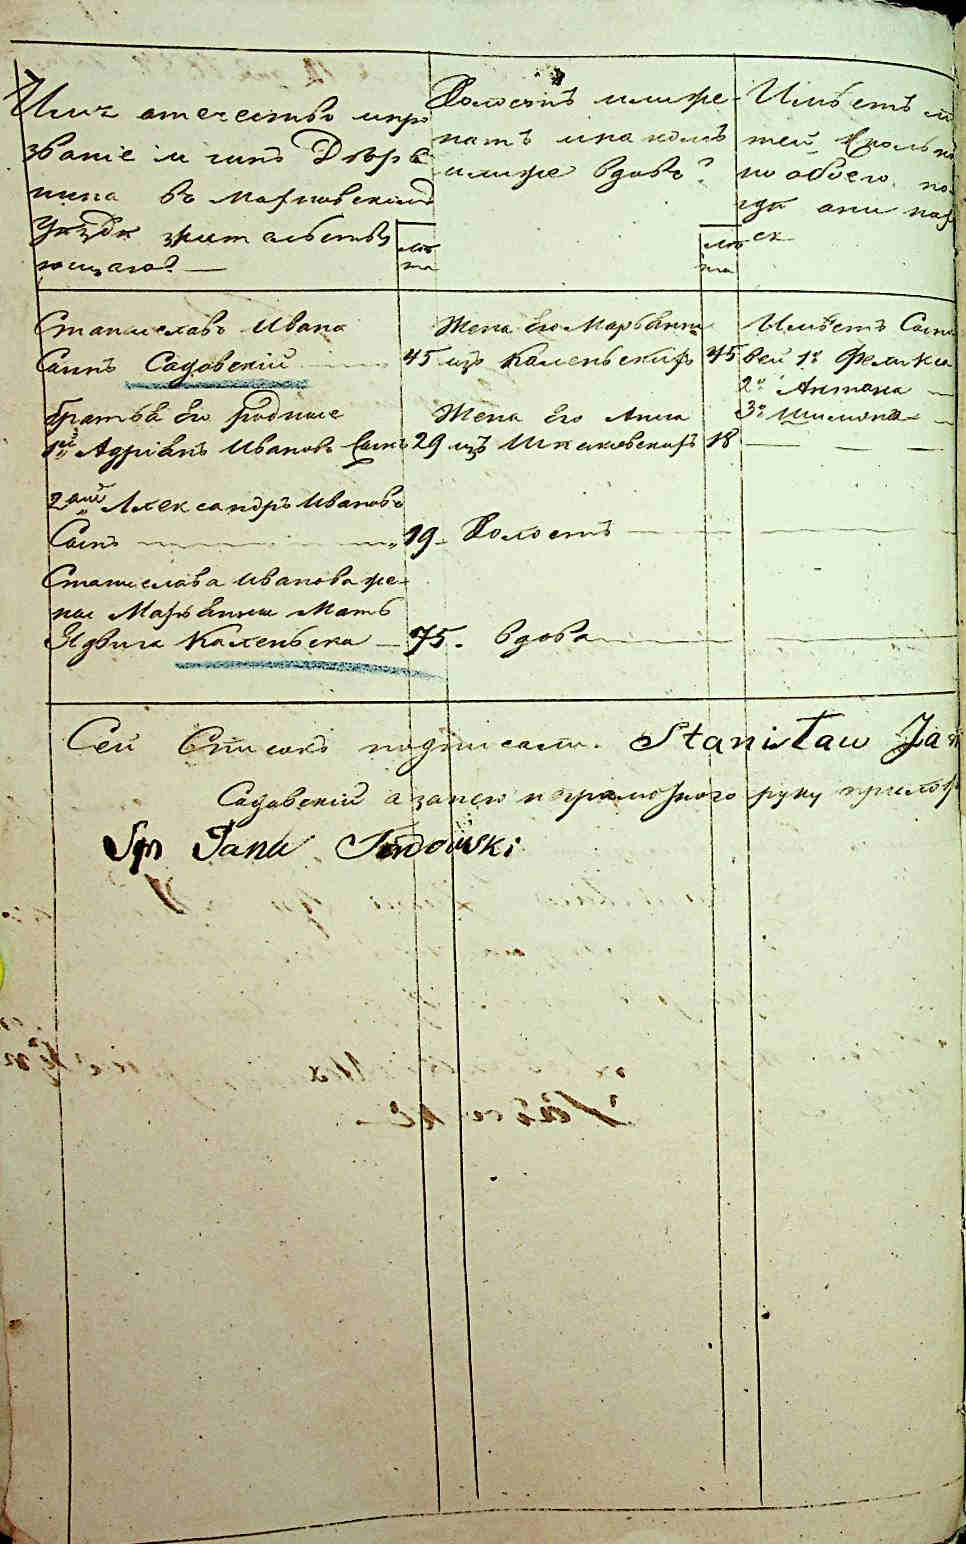 Имя отечество и про
звание и чинъ Дворя
нина въ Махновскомъ
Уѣздѣ жительству
ющаго?
лѣ
та
Холостъ или же
натъ и на комъ
или же вдовъ?
лѣ
та
Имѣетъ ли
тей, сколько
по обоего по
гдѣ они нах
ся
Станиславъ Ивана
Сынъ Садовскій 45
Жена Его Марьянна
изъ Каленьскихъ 45
Имѣетъ Сыно
вей 1й Феликса
2й Антона
3й Шимона
братья Его родные
1й Адріянъ Ивановъ Сынъ 29
Жена Его Анна
изъ Шкаковскихъ 18
2й Александръ Ивановъ
Сынъ 19 Холостъ
Станислава Иванова же
ны Марьянны Мать
Ядвига Каленьска 75. вдова
Сей Списокъ подписалъ. Stanisław Ja
Садовскій а за него неграмотного руку прилож
Syn Jana Sadowski